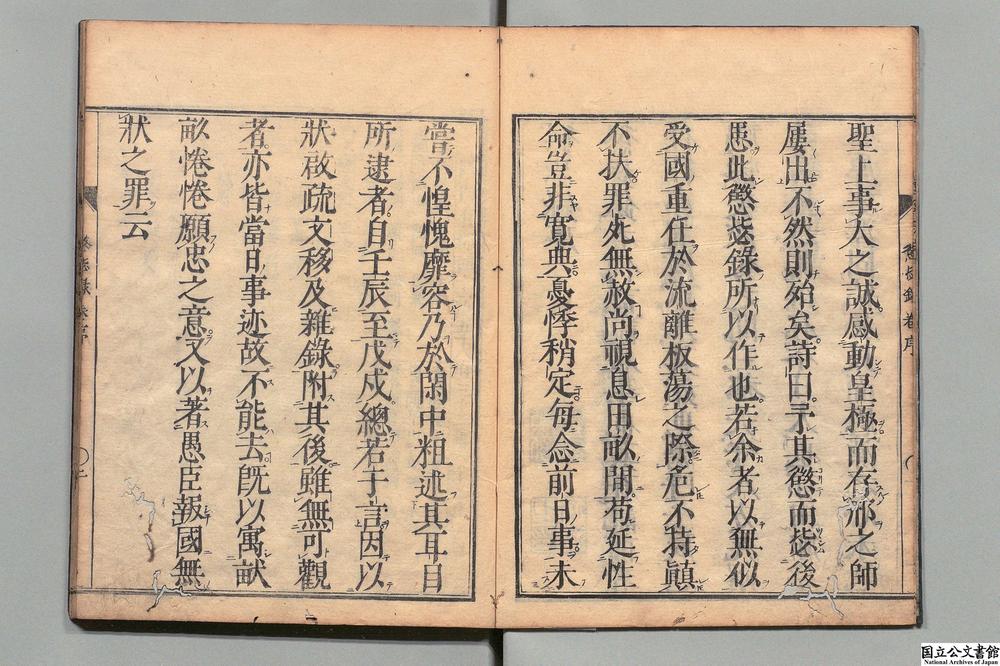 聖上事大之誠感動皇極而存邢之師
屢出不然則殆矣詩曰予其懲而毖後
患此懲毖錄所以作也若余者以無似
受國重任於流離板蕩之際危不持顚
不扶罪死無赦尚視息田畝間苟延性
命豈非寬典憂悸稍定每念前日事未
甞不惶愧靡容乃於閑中粗述其耳目
所逮者自壬辰至戊戌總若干言因以
狀啟疏文移及雜錄附其後雖無可觀
者亦皆當日事迹故不能去既以寓畎
畝惓惓願忠之意又以著愚臣報國無
狀之罪云
懲毖錄 卷序
国立公文書館
National Archives of Japan